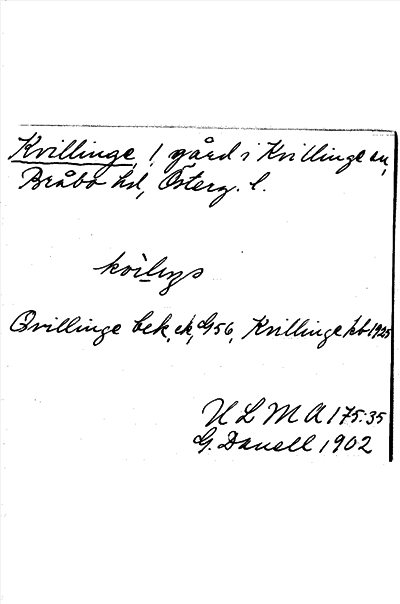 Kvillinge, 1 gård i Kvillinge sn,
Bråbo hd, Österg. l.
Qvillinge bek, ek, G56, Kvillinge kb 1925
ULMA 175:35
G. Danell 1902